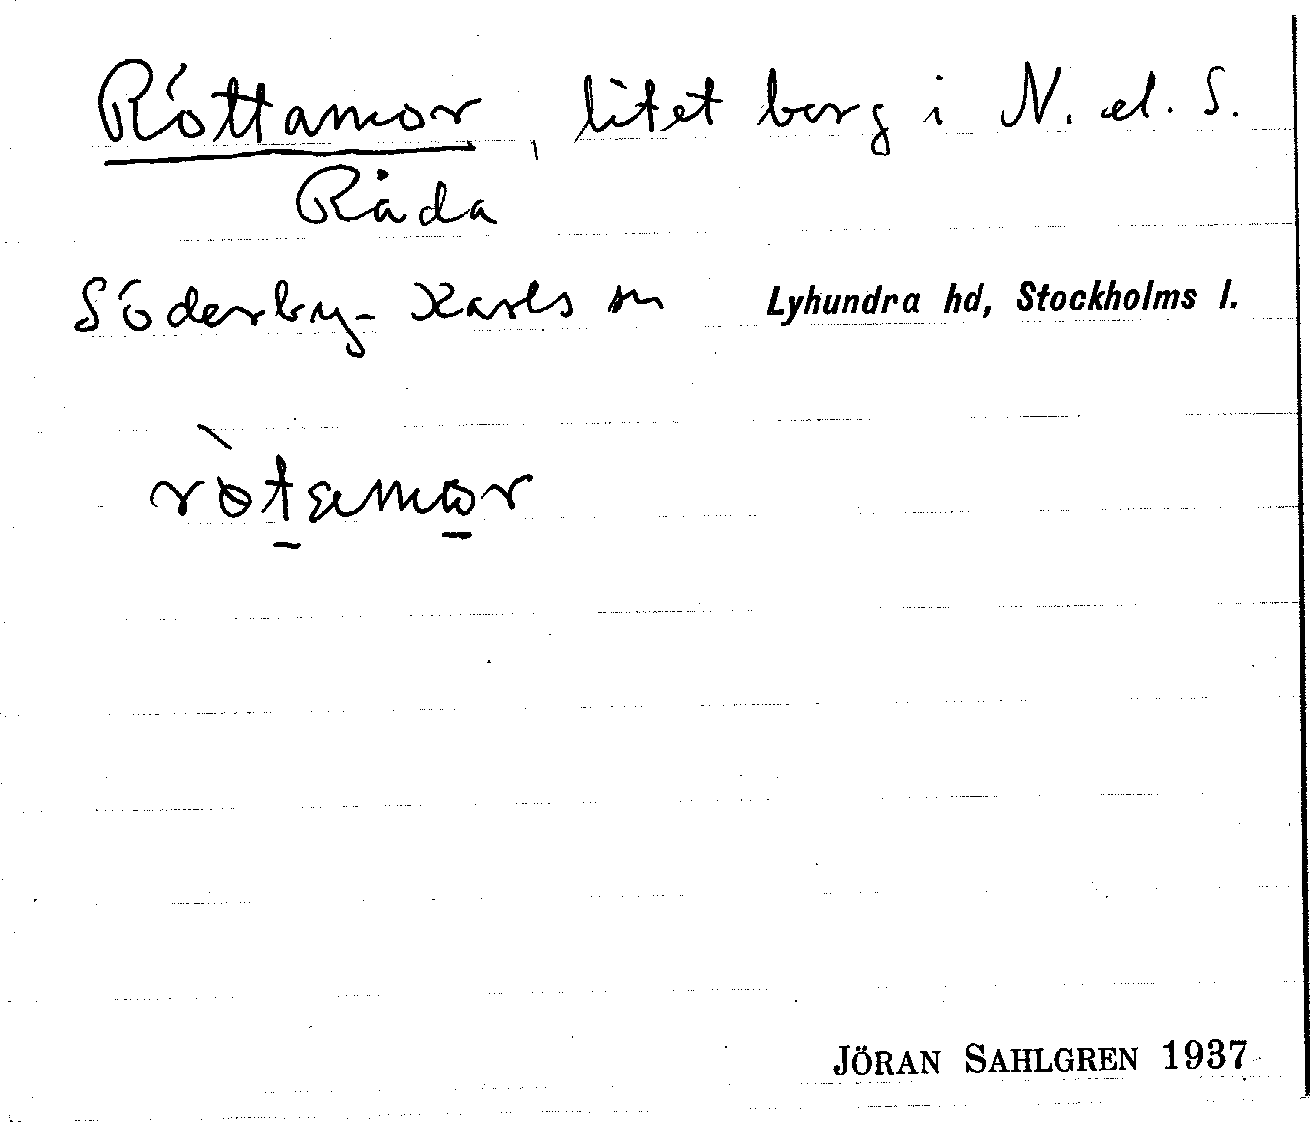 Röttamor, litet berg i N. el. S.
Råda
Söderby-Karls sn Lyhundra hd, Stockholms l.
JÖRAN SAHLGREN 1937